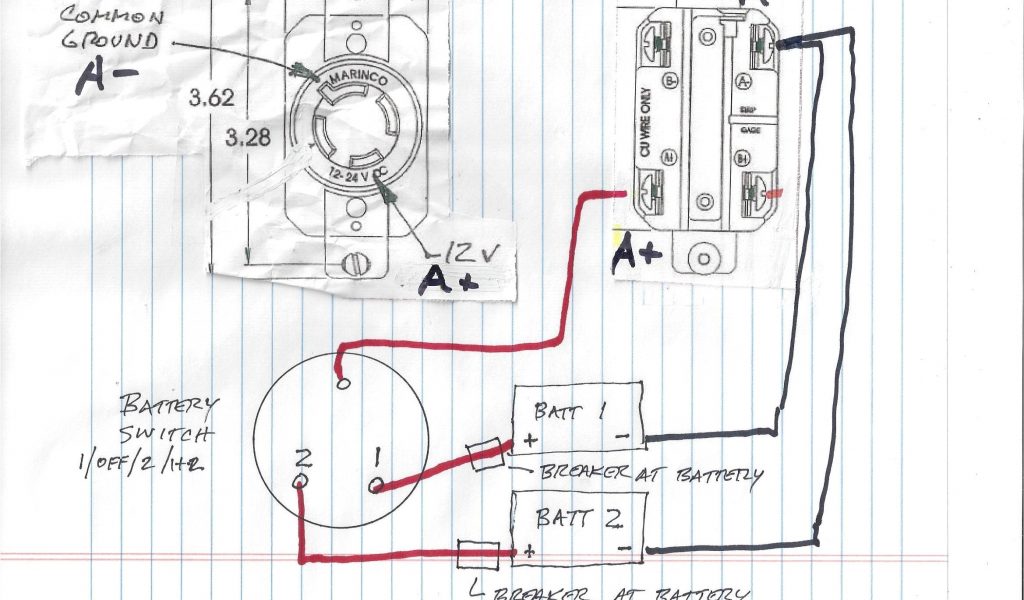 COMMON
GROUND
A-
3.62
3.28
MARINCO
12-24V DC
-12V
A+
B-
A-
CU WIRE ONLY
STRIP
GAGE
A+
B+
A+
BATTERY
SWITCH
1/OFF/2/1+2
2
1
BATT 1
+
-
BREAKER AT BATTERY
BATT 2
+
-
BREAKER AT BATTERY